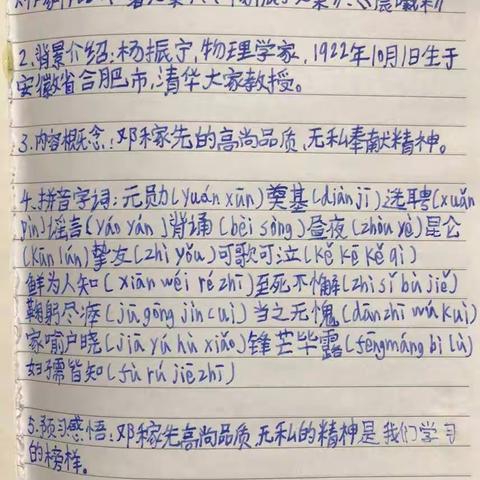 2.背景介绍:杨振宁,物理学家,1922年10月1日生于
安徽省合肥市,清华大家教授。
3.内容概念:邓稼先的高尚品质,无私奉献精神。
4.拼音字词:元勋(yuán xūn)奠基(diàn jī)选聘(xuǎn
pìn)谣言(yáo yán)背诵(bèi sòng)昼夜(zhòu yè)昆仑
(kūn lún)挚友(zhì yǒu)可歌可泣(kě kē kě qì)
鲜为人知(xiān wéi ré zhī)至死不懈(zhì sǐ bù jiě)
鞠躬尽瘁(jū gōng jìn cuì)当之无愧(dān zhī wú kuì)
家喻户晓(jiā yú hù xiǎo)锋芒毕露(fēng máng bì lù)
妇孺皆知(fù rú jiē zhī)
5.预习感悟:邓稼先高尚品质,无私的精神是我们学习
的榜样。